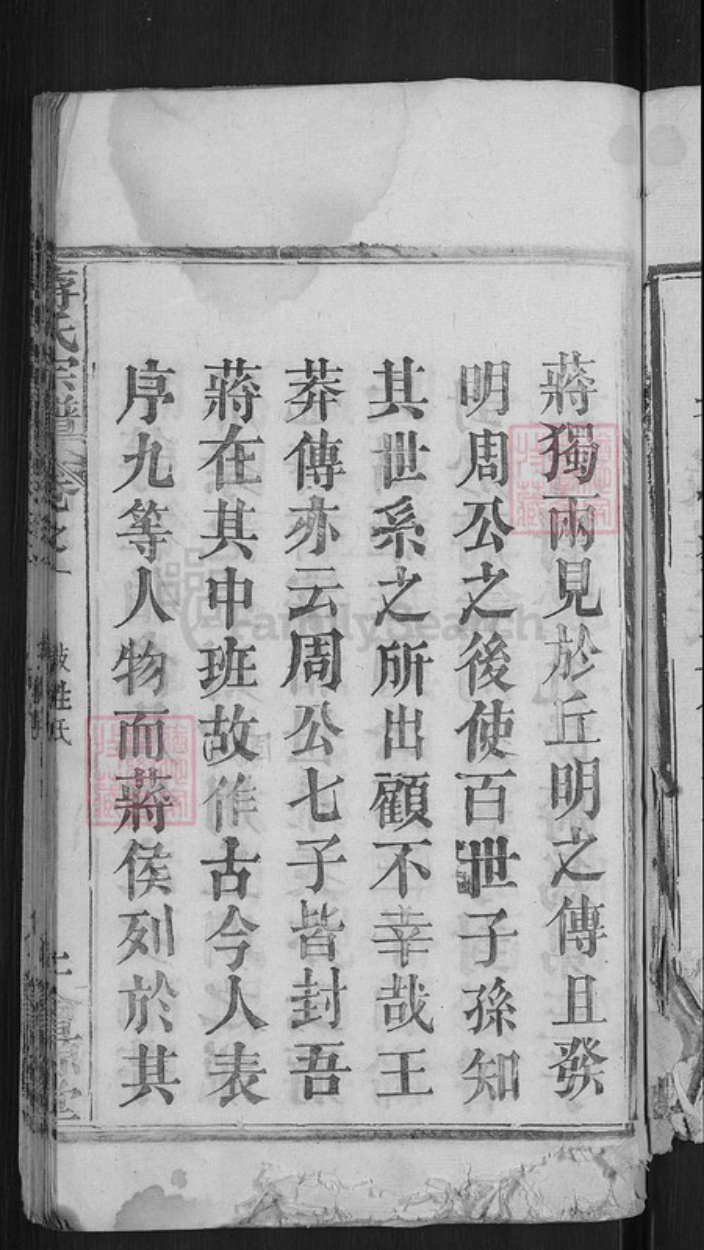 蔣獨兩見於丘明之傳且發
明周公之後使百世子孫知
其世系之所出顧不幸哉王
莽傳亦云周公七子皆封吾
蔣在其中班故作古今人表
序九等人物而蔣侯列於其
蔣氏宗譜 卷之一 姓氏
FamilySearch